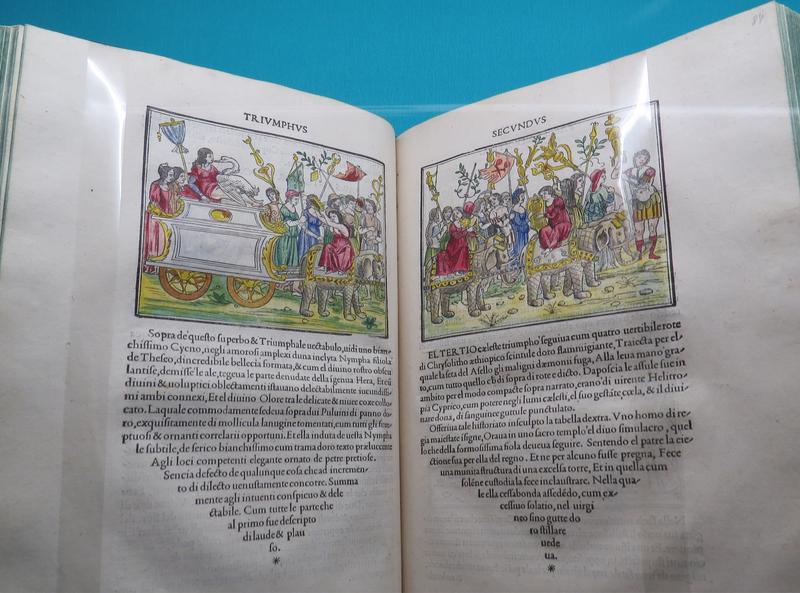 TRIVMPHVS
Sopra de questo superbo & Triumphale uectabulo, uidi uno bian-
chissimo Cycno, negli amorosi amplexi duna inclyta Nympha filiola
de Theseo, dincredibile bellecia formata, & cum el diuino rostro obscu
lantise, demisse le ale, tegeua le parte denudate della igenua Hera, Et cũ
diuini & uoluptici oblectamenti istauano delectabilmente iucundissi-
mi ambi connexi, Et el diuino Olore tra le delicate & niuee coxe collo-
cato. Laquale commodamente sedeua sopra dui Puluini di panno do-
ro, exquisitamente di mollicula lanugine tomentati, cum tutti gli sum-
ptuosi & ornanti correlarii opportuni. Et ella induta de uesta Nympha
le subtile, de serico bianchissimo cum trama doro texto præluccente
Agli loci competenti elegante ornato de petre pretiose.
Sencia defecto de qualunque cosa chead incremen-
to di dilecto uenustamente concorre. Summa
mente agli intuenti conspicuo & dele
ctabile. Cum tutte le parte che
al primo fue descripto
di laude & plau
so.
*
SECVNDVS
84
EL TERTIO cæleste triumpho seguiua cum quatro uertibile rote
di Chrysolitho æthiopico scintule doro flammigiante, Traiecta per el-
quale la seta del Asello gli maligni dæmonii fuga, Alla leua mano gra-
to, cum tutto quello ch di sopra di rote e dicto. Daposcia le assule sue in
ambito per el modo compacte sopra narrato, erano di uirente Helitro-
pia Cyprico, cum potere negli lumi cælesti, el suo gestãte cœla, & il diui-
nare dona, di sanguinee guttule punctulato.
Offeriua tale historiato insculpto la tabella dextra. Vno homo di re-
gia maiestate isigne, Oraua in uno sacro templo el diuo simulacro, quel
lo che della formosissima fiola deueua seguire. Sentendo el patre la eie-
ctione sua per ella del regno. Et ne per alcuno fusse pregna, Fece
una munita structura di una excelsa torre, Et in quella cum
soléne custodia la fece inclaustrare. Nella qua-
le ella cessabonda assedédo, cum ex-
cessiuo solatio, nel uirgi
neo sino gutte do
ro stillare
uede
ua.
*